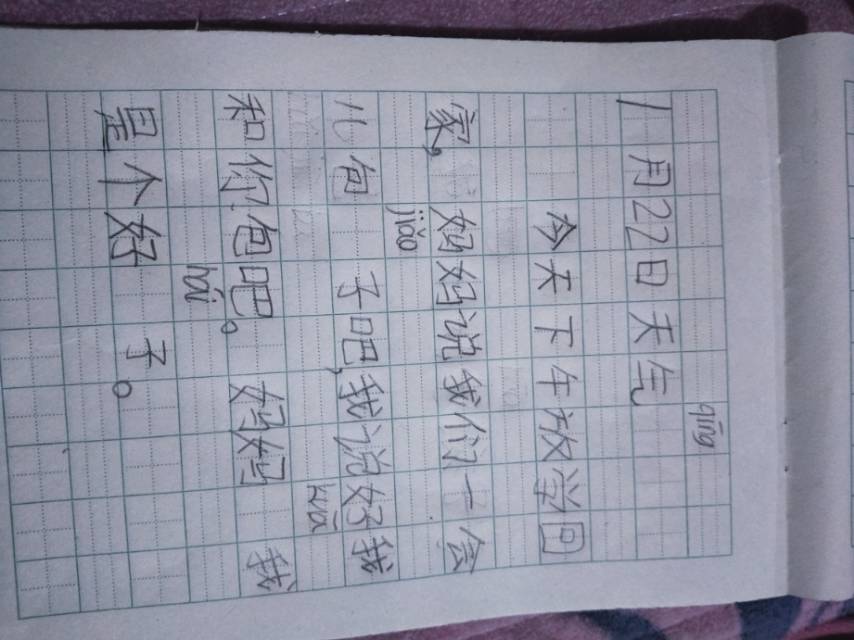 qíng
1月22日天气
今天下午放学回
家,妈妈说我们一会
jiǎo
儿包 子吧,我说好我
kuā
和你包吧。妈妈 我
hái
是个好 子。